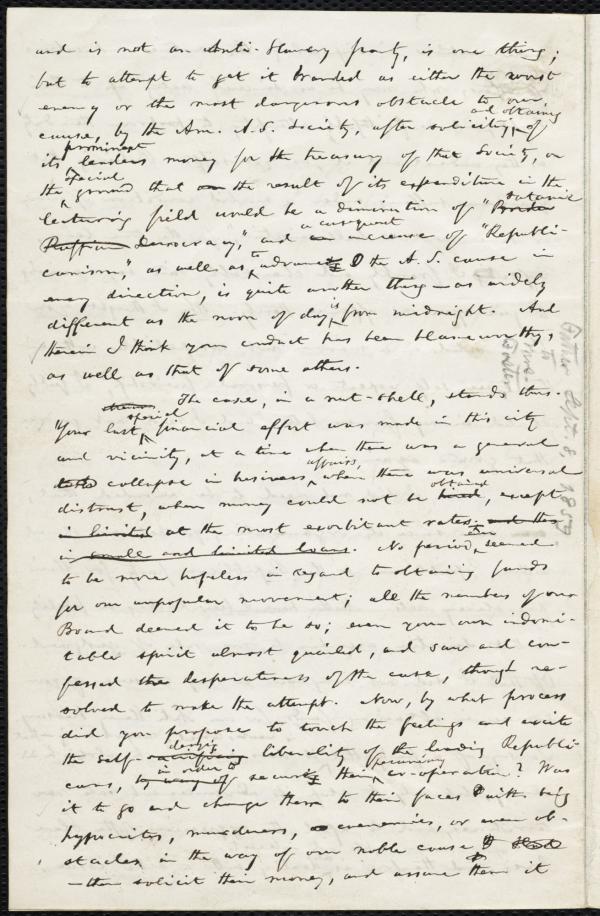 and is not an Anti-Slavery party, is one thing;
but to attempt to get it branded as either the worst
enemy or the most dangerous obstacle to our
cause, by the Am. A. S. Society, after soliciting and obtaining of
its prominent leaders money for the treasury of that Society, on
the special ground that the result of its expenditure in the
lecturing field would be a diminution of "satanic
Democracy," and a consequent increase of "Republi-
canism," as well as to advance the A. S. cause in
every direction, is quite another thing—as widely
different as the noon of day is from midnight. And
therein I think your conduct has been blameworthy,
as well as that of some others.
The case, in a nut-shell, stands thus.
Your last special financial effort was made in this city
and vicinity, at a time when there was a general
collapse in business affairs, when there was universal
distrust, when money could not be obtained, except
at the most exorbitant rates.
No period ever seemed
to be more hopeless in regard to obtaining funds
for our unpopular movement; all the members of our
Board deemed it to be so; even your own indomi-
table spirit almost quailed, and saw and con-
fessed the desperateness of the case, though re-
solved to make the attempt. Now, by what process
did you propose to touch the feelings and excite
the self-denying liberality of the leading Republi-
cans, in order to secure their pecuniary co-operation? Was
it to go and charge them to their faces with being
hypocrites, murderers, enemies, or even ob-
stacles in the way of our noble cause
—then solicit their money, and assure them it
Sept. 8, 1857